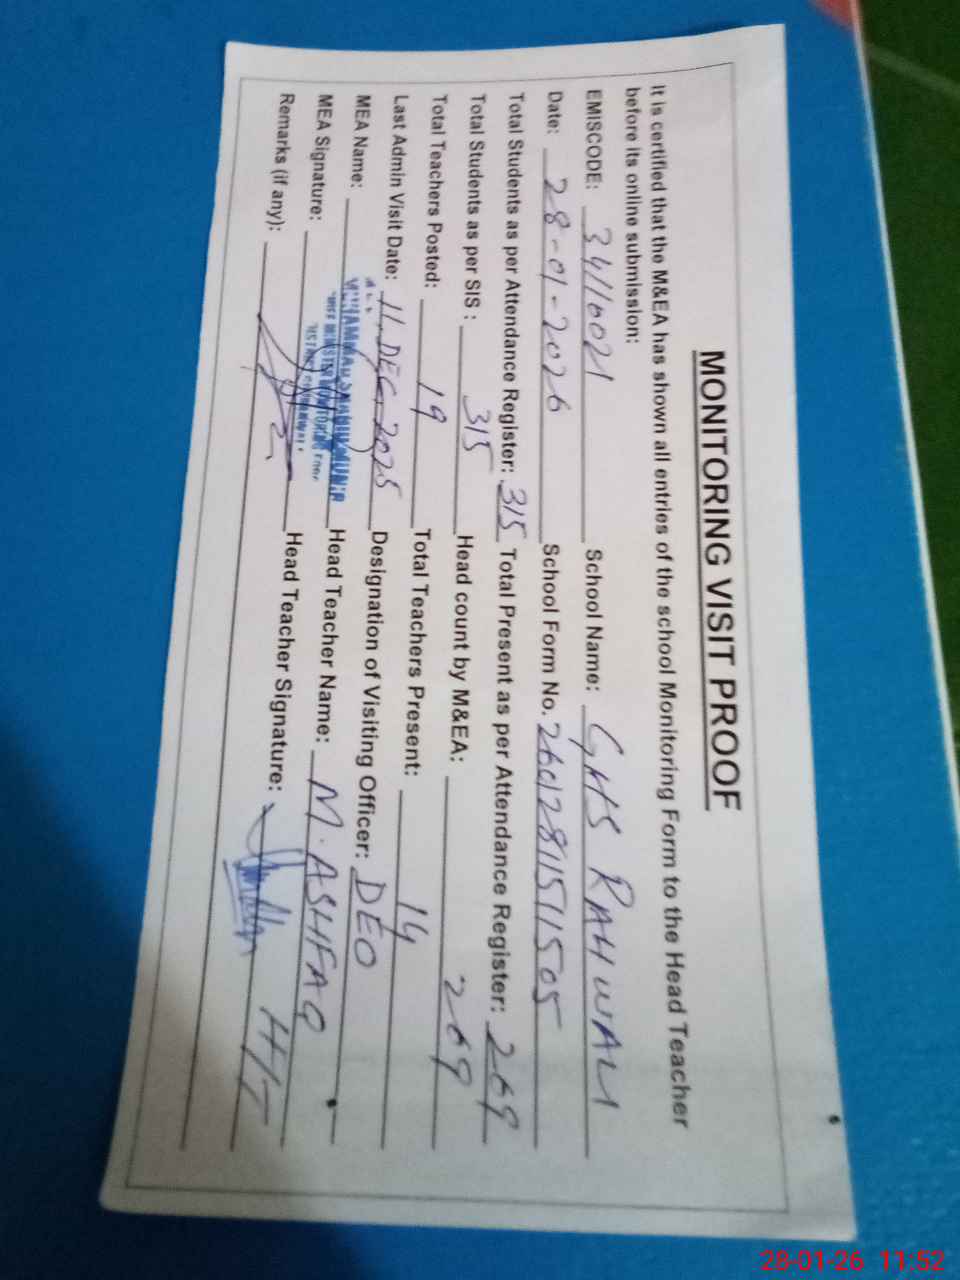 MONITORING VISIT PROOF
It is certified that the M&EA has shown all entries of the school Monitoring Form to the Head Teacher
before its online submission:
EMISCODE: 34110021 School Name: GHS RAHWALI
Date: 28-01-2026 School Form No. 260128115111505
Total Students as per Attendance Register: 315 Total Present as per Attendance Register: 269
Total Students as per SIS: 315 Head count by M&EA: 269
Total Teachers Posted: 19 Total Teachers Present: 14
Last Admin Visit Date: 11-DEC-2025 Designation of Visiting Officer: DEO
MEA Name: MUHAMMAD Head Teacher Name: M. ASHFAQ
MEA Signature: Head Teacher Signature:
Remarks (if any):
28-01-26 11:52